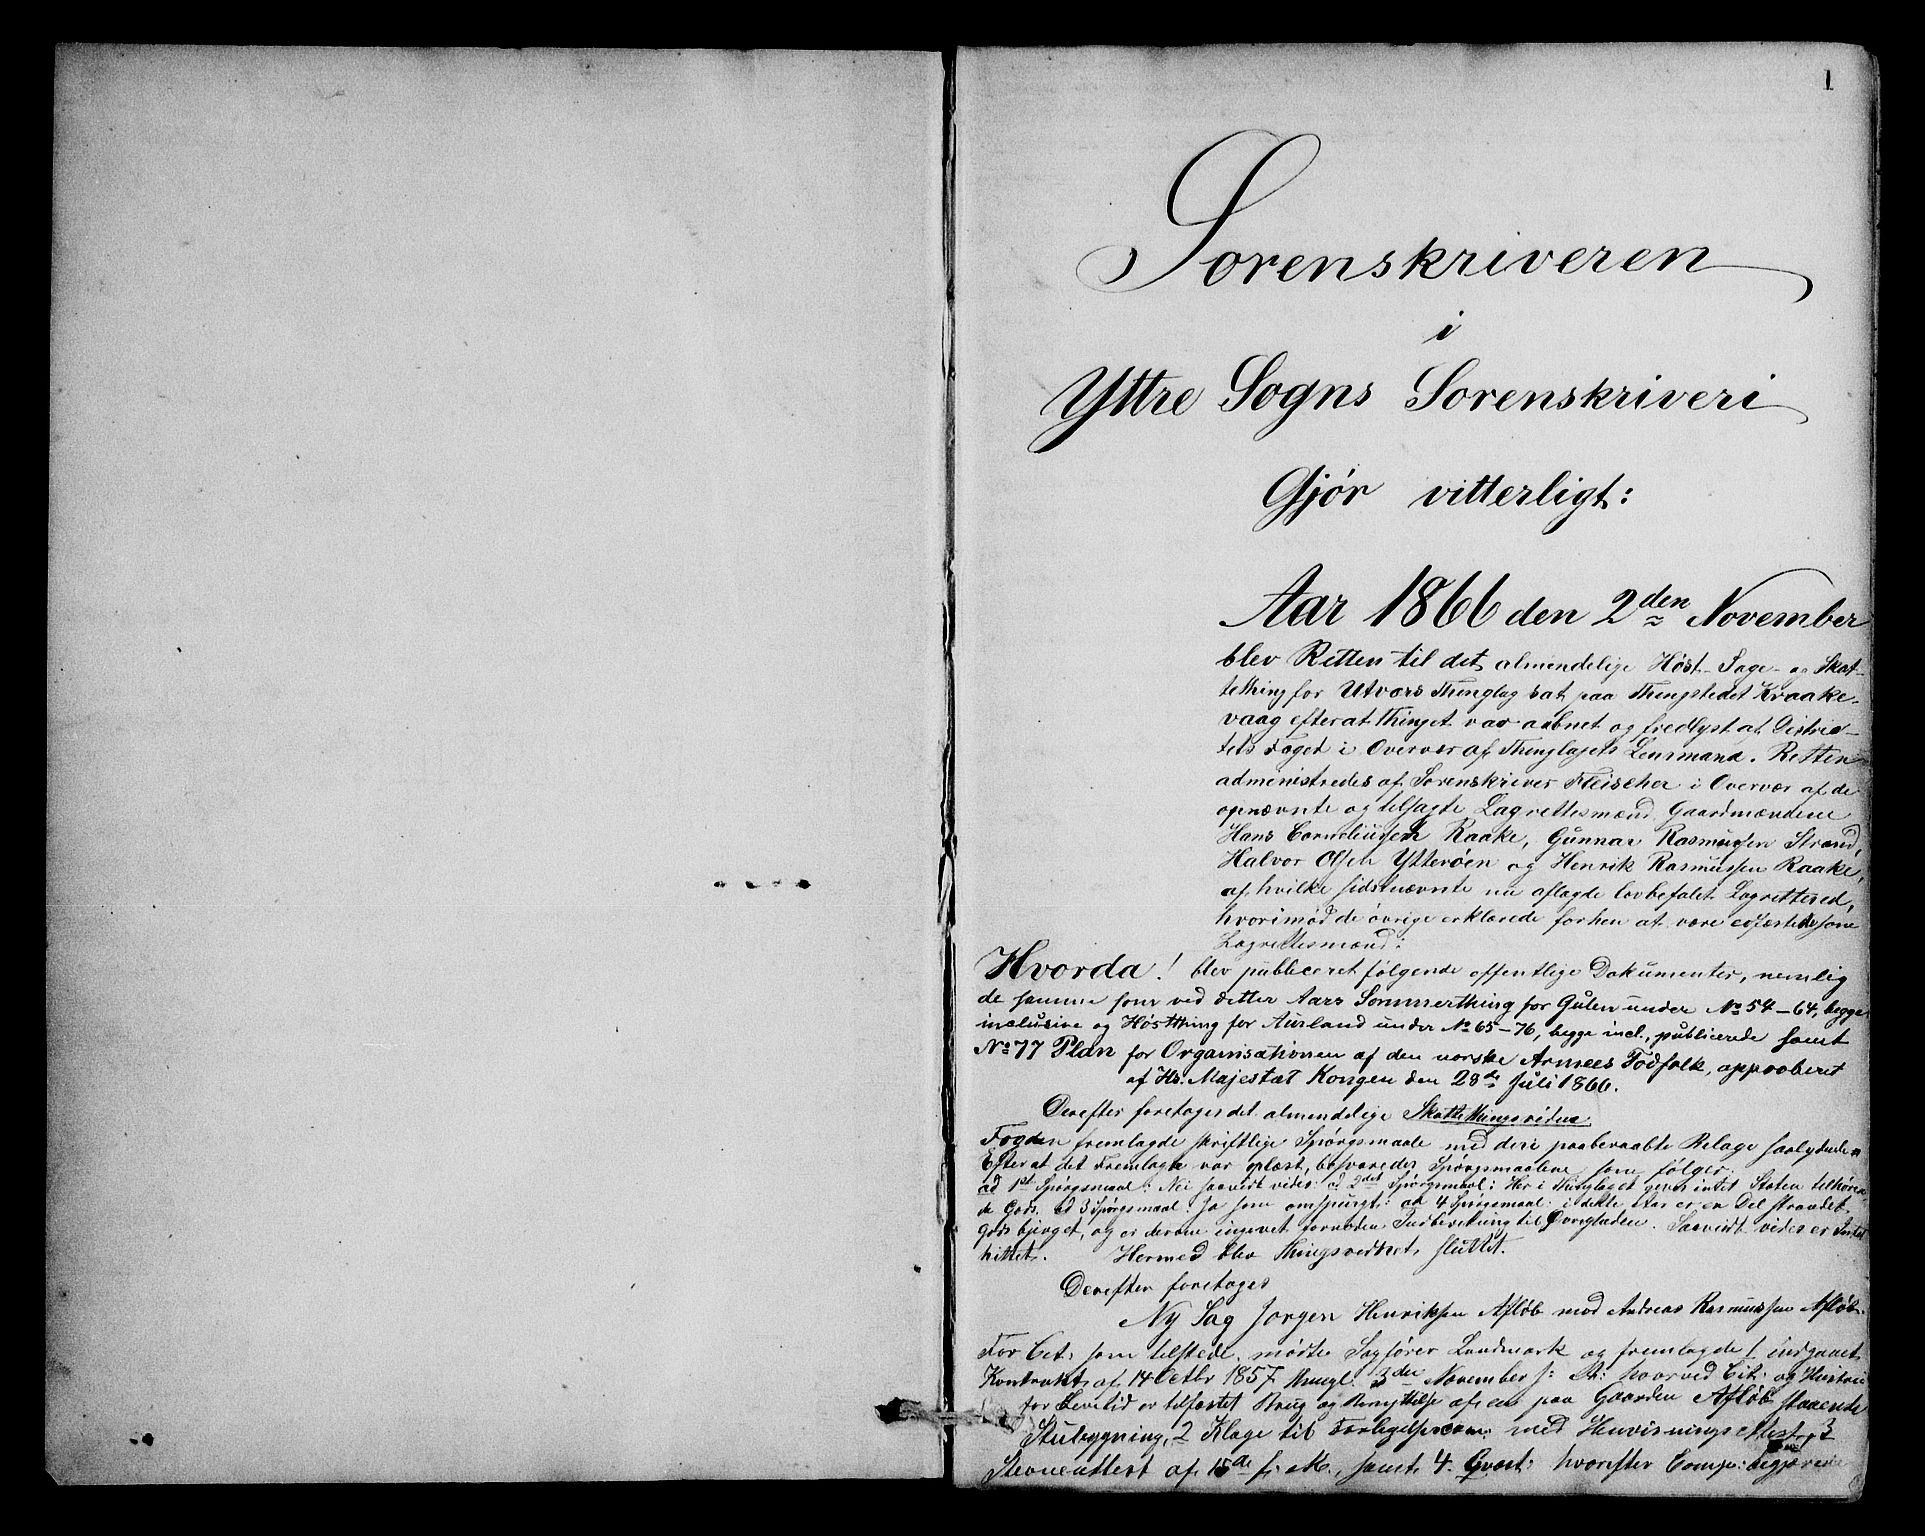 1
Sorenskriveren
i
Yttre Sogns Sorenskriveri
Gjør vitterligt:
Aar 1866 den 2den November
blev Retten til det almindelige Høst- Sage- og Skat-
tething for Utværs Thinglag sat paa Thingstedet Kraake-
vaag efterat Thinget var aabnet og fredlyst af Distrik-
tets Foged i Overvær af Thinglagets Lensmand. Retten
administredes af Sorenskriver Fleischer i Overvær af de
opnævnte og tilsagte Lagrettesmænd Gaardmændene
Hans Corneliussen Raake, Gunnar Rasmussen Strand,
Halvor Olsen Ytterøen og Henrik Rasmussen Raake,
af hvilke sidstnævnte nu aflagde lovbefalet Lagretteed,
hvorimod de øvrige erklærede forhen at være edfæstede som
Lagrettesmænd:
Hvorda! blev publiceret følgende offentlige Dokumenter, nemlig
de samme som ved dette Aars Sommerthing for Gulen under No 54-64, begge
inclusive og Høstthing for Aurland under No 65-76, begge incl., publicerede samt
No 77 Plan for Organisationen af den norske Armees Fodfolk, approberet
af Hs. Majestæt Kongen den 28de Juli 1866.
Derefter foretoges det almindelige Skattethingsvidne.
Fogden fremlagde skriftlige Spørgsmaale med deri paaberaabte Bilage saalydende
Efterat det Fremlagte var oplæst, besvaredes Spørgsmaalene som følger:
ad 1st Spørgsmaal: Nei saavidt vides: ad 2det Spørgsmaal: Her i Thinglaget gives intet Staten tilhøren-
de Gods. ad 3 Spørgsmaal: Ja som omspurgt: ad 4 Spørgsmaal: i dette Aar er en Del strandet
Gods bjerget, og er derom ingivet fornøden Indberetning til Øvrigheden. Saavidt vides er Intet
hittet. Hermed blev Thingsvidnet sluttet.
Derefter foretoges
Ny Sag Jørgen Henriksen Afløb mod Andreas Rasmussen Afløb.
For Cit: som tilstede mødte Sagfører Landmark og fremlagde 1 indgaaet
Kontrakt af 14 Octbr 1857 thingl. 3die November s: A: hvorved Cit: og Hustru
for Levetid er tilfæstet Brug og Benyttelse af en paa Gaarden Afløb staaende
Stubygning, 2 Klage til Forligelsescom: med Henvisnings Attest, 3
Stevneattest af 15de f: M., samt 4. Qvæst: hvorefter Comp: begjærede